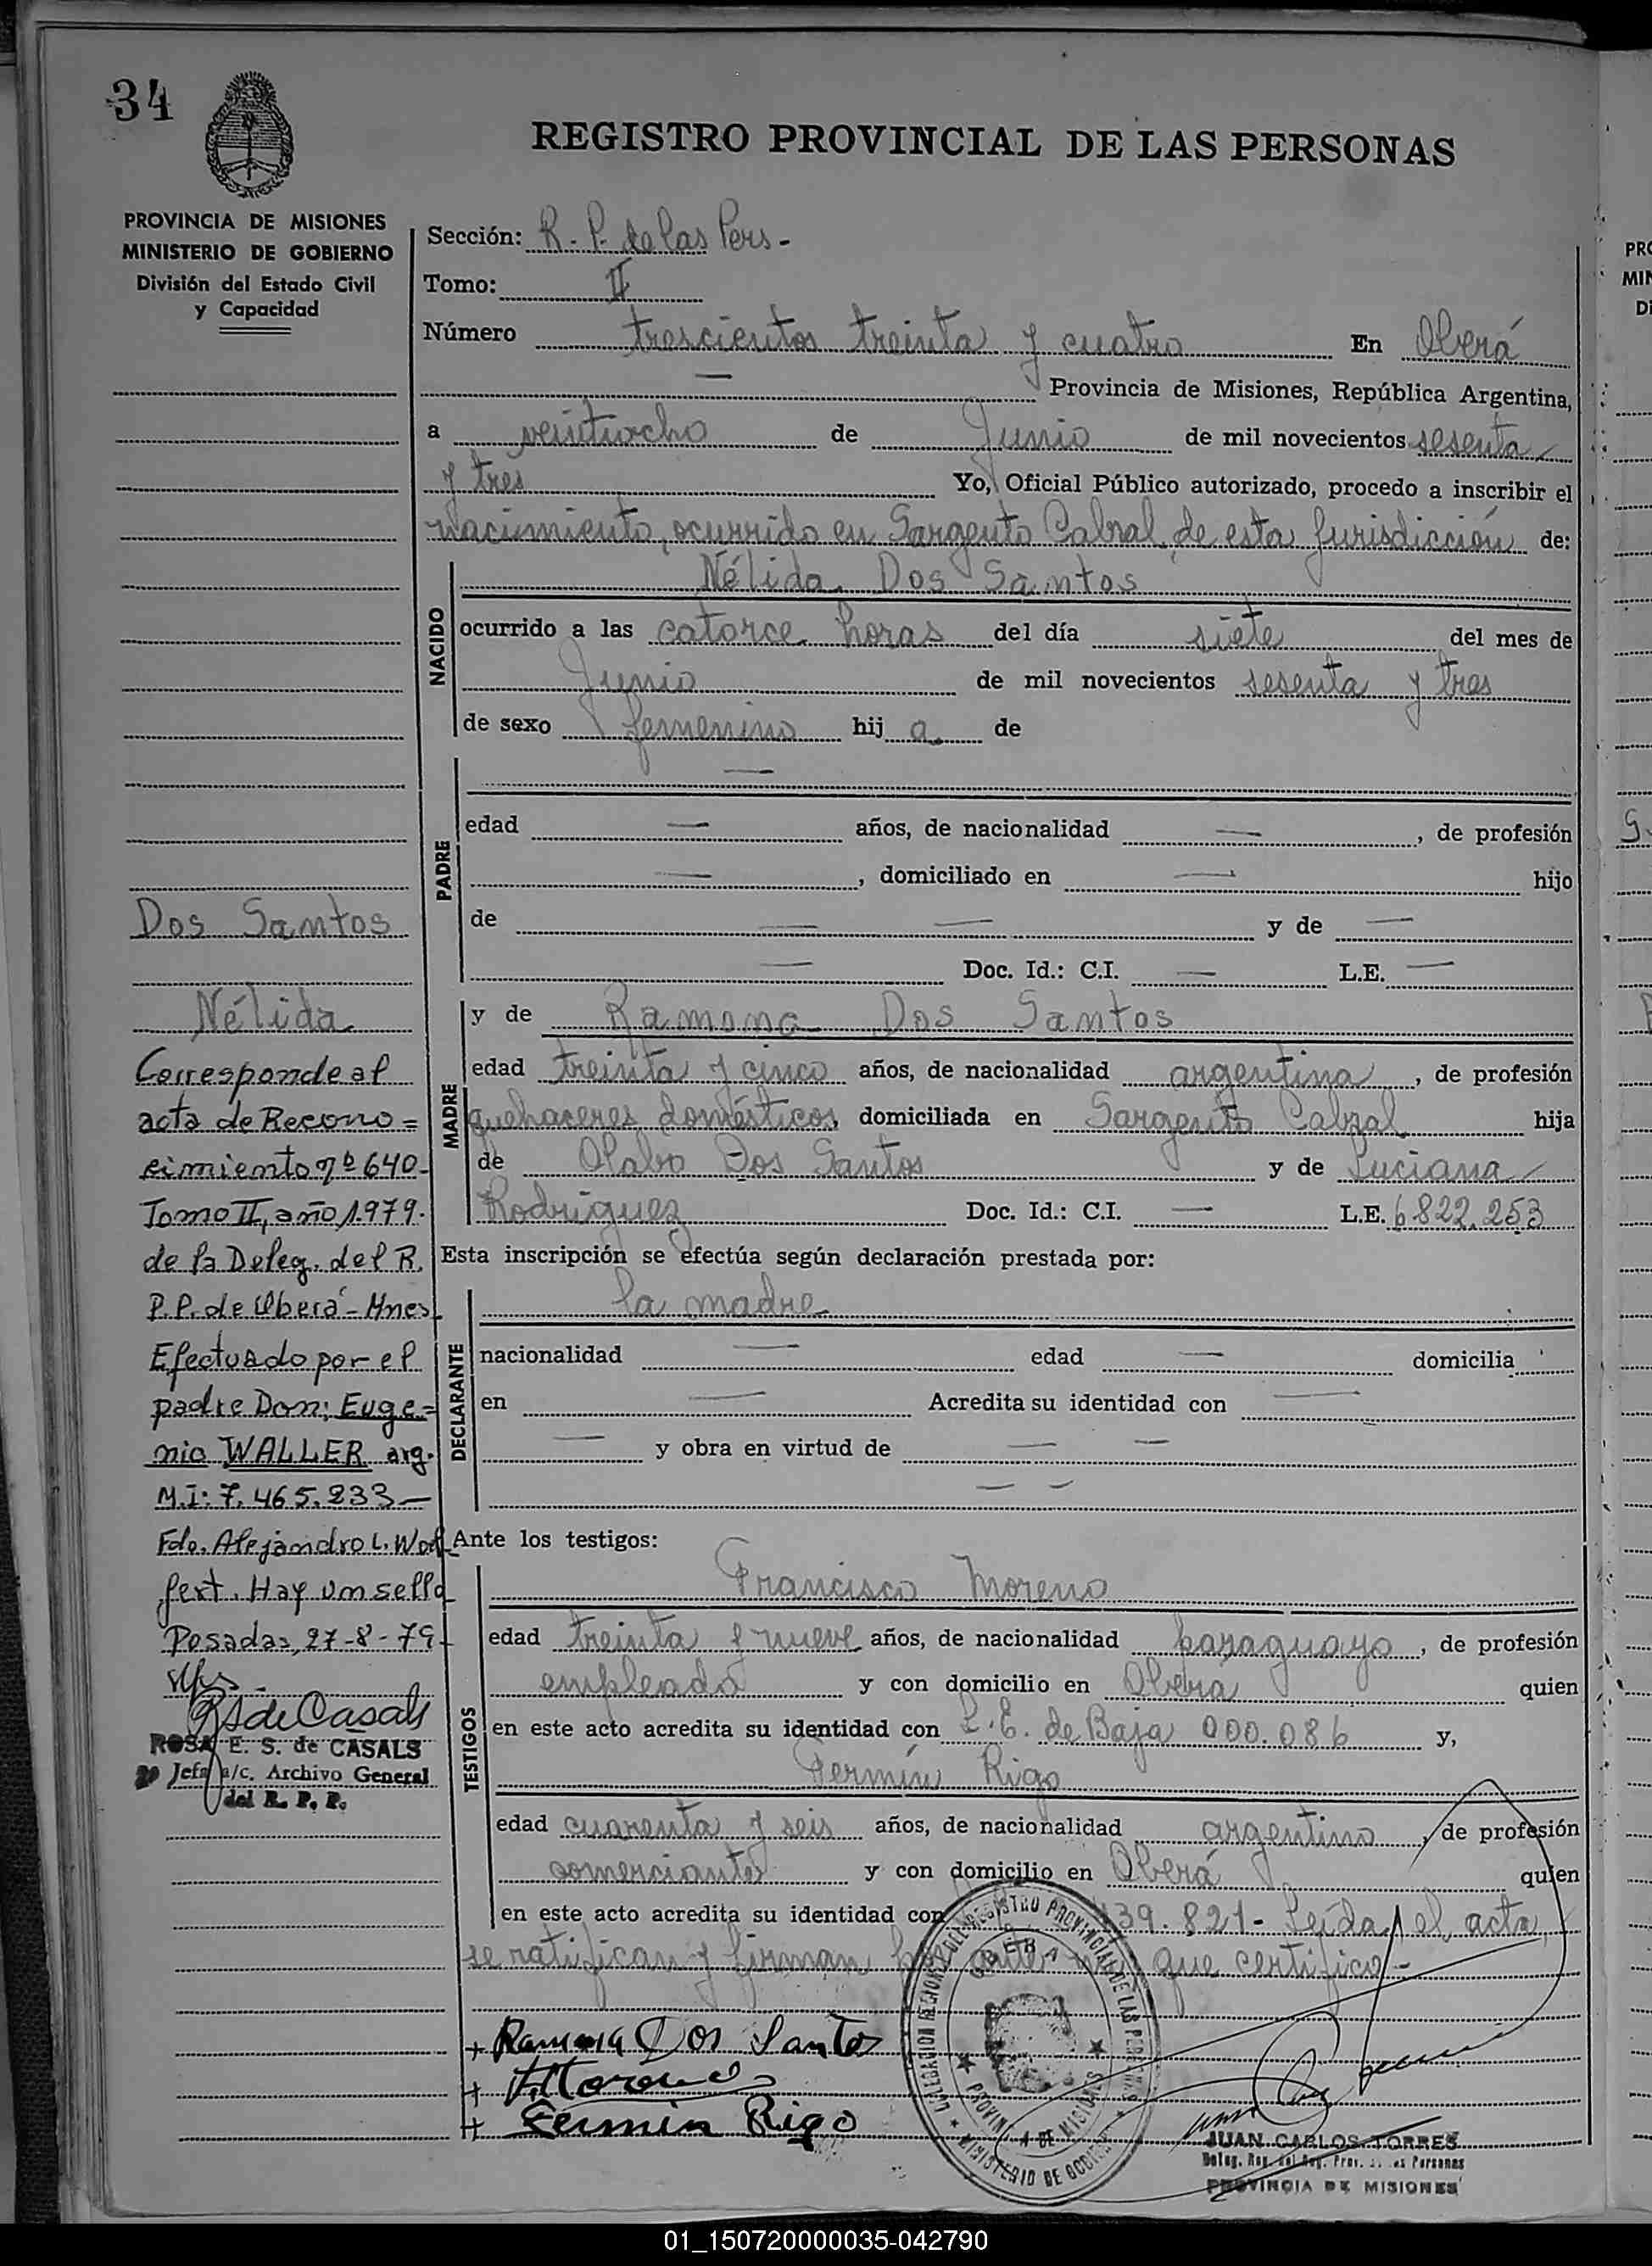 34
REGISTRO PROVINCIAL DE LAS PERSONAS
PROVINCIA DE MISIONES
MINISTERIO DE GOBIERNO
División del Estado Civil
y Capacidad
Sección: R. P. de las Pers -
Tomo: II
Número trescientos treinta y cuatro En Oberá
— Provincia de Misiones, República Argentina,
a veintiocho de Junio de mil novecientos sesenta
y tres Yo, Oficial Público autorizado, procedo a inscribir el
nacimiento, ocurrido en Sargento Cabral de esta Jurisdicción de:
NACIDO
Nélida Dos Santos
ocurrido a las catorce horas del día siete del mes de
Junio de mil novecientos sesenta y tres
de sexo femenino hij a de
PADRE
—
edad — años, de nacionalidad —, de profesión
—, domiciliado en — hijo
de — — y de —
— Doc. Id.: C.I. — L.E. —
MADRE
y de Ramona Dos Santos
edad treinta y cinco años, de nacionalidad argentina, de profesión
quehaceres domésticos, domiciliada en Sargento Cabral hija
de Olabo Dos Santos y de Luciana
Rodriguez Doc. Id.: C.I. — L.E. 6.822.253
Esta inscripción se efectúa según declaración prestada por:
DECLARANTE
la madre
nacionalidad — edad — domicilia
en — Acredita su identidad con —
— y obra en virtud de — —
— —
Ante los testigos:
TESTIGOS
Francisco Moreno
edad treinta y nueve años, de nacionalidad paraguayo, de profesión
empleado y con domicilio en Oberá quien
en este acto acredita su identidad con L.E. de Baja 000.086 y,
Fermín Rigo
edad cuarenta y seis años, de nacionalidad argentino, de profesión
comerciante y con domicilio en Oberá quien
en este acto acredita su identidad con 139.821- Leída el acta
se ratifican y firman que certifico -
+ Ramona Dos Santos
+ FMoreno
+ Fermin Rigo
DELEGACION REGIONAL DEL REGISTRO PROVINCIAL DE LAS PERSONAS
OBERA
PROVINCIA DE MISIONES
MINISTERIO DE GOBIERNO
JUAN CARLOS TORRES
Deleg. Reg. del Reg. Prov. de las Personas
PROVINCIA DE MISIONES
Dos Santos
Nélida
Corresponde al
acta de Recono=
cimiento nº 640-
Tomo II, año 1.979.
de la Deleg. del R.
P.P. de Oberá - Mnes
Efectuado por el
padre Don: Euge=
nio WALLER arg.
M.I: 7.465.233—
Fdo. Alejandro L. Wol
fert. Hay un sello
Posadas, 27-8-79-
RSdeCasals
ROSA E. S. de CASALS
Jefa a/c. Archivo General
del R. P. P.
01_150720000035-042790